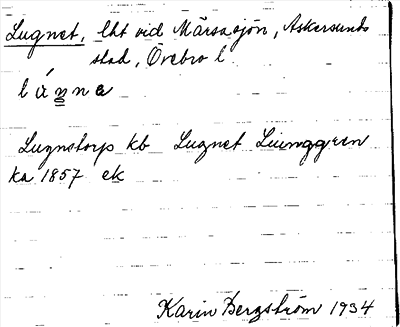 Lugnet, lht vid Märsasjön, Askersunds
stad, Örebro l
Lugnstorp kb Lugnet Liunggren
ka 1857 ek
Karin Bergström 1934